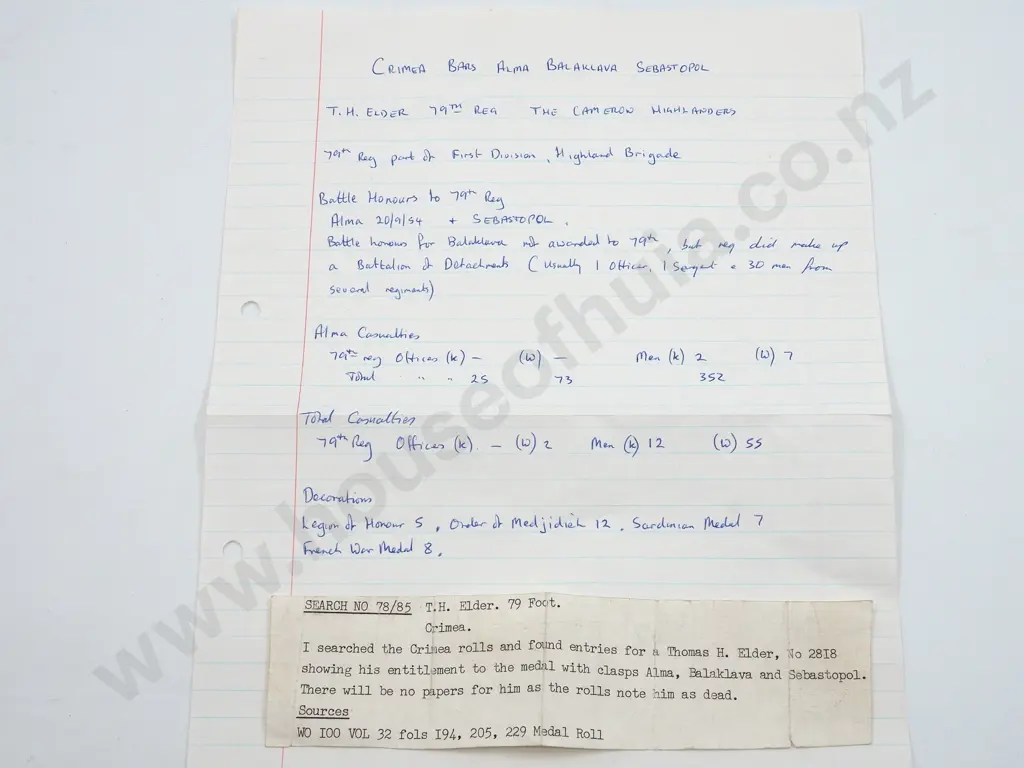 CRIMEA BARS ALMA BALAKLAVA SEBASTOPOL
T.H. ELDER 79TH REG THE CAMERON HIGHLANDERS
79th Reg part of First Division, Highland Brigade
Battle Honours to 79th Reg
Alma 20/9/54 + SEBASTOPOL.
Battle honours for Balaklava not awarded to 79th, but reg did make up
a Battalion of Detachments (usually 1 officer, 1 sargent & 30 men from
several regiments)
Alma Casualties
79th reg Officers (k) — (w) — Men (k) 2 (w) 7
Total " " 25 73 352
Total Casualties
79th Reg Officers (k). — (w) 2 Men (k) 12 (w) 55
Decorations
Legion of Honour 5, Order of Medjidieh 12, Sardinian Medal 7
French War Medal 8.
SEARCH NO 78/85 T.H. Elder. 79 Foot.
Crimea.
I searched the Crimea rolls and found entries for a Thomas H. Elder, No 28I8
showing his entitlement to the medal with clasps Alma, Balaklava and Sebastopol.
There will be no papers for him as the rolls note him as dead.
Sources
WO I00 VOL 32 fols I94, 205, 229 Medal Roll
www.houseofhuia.co.nz